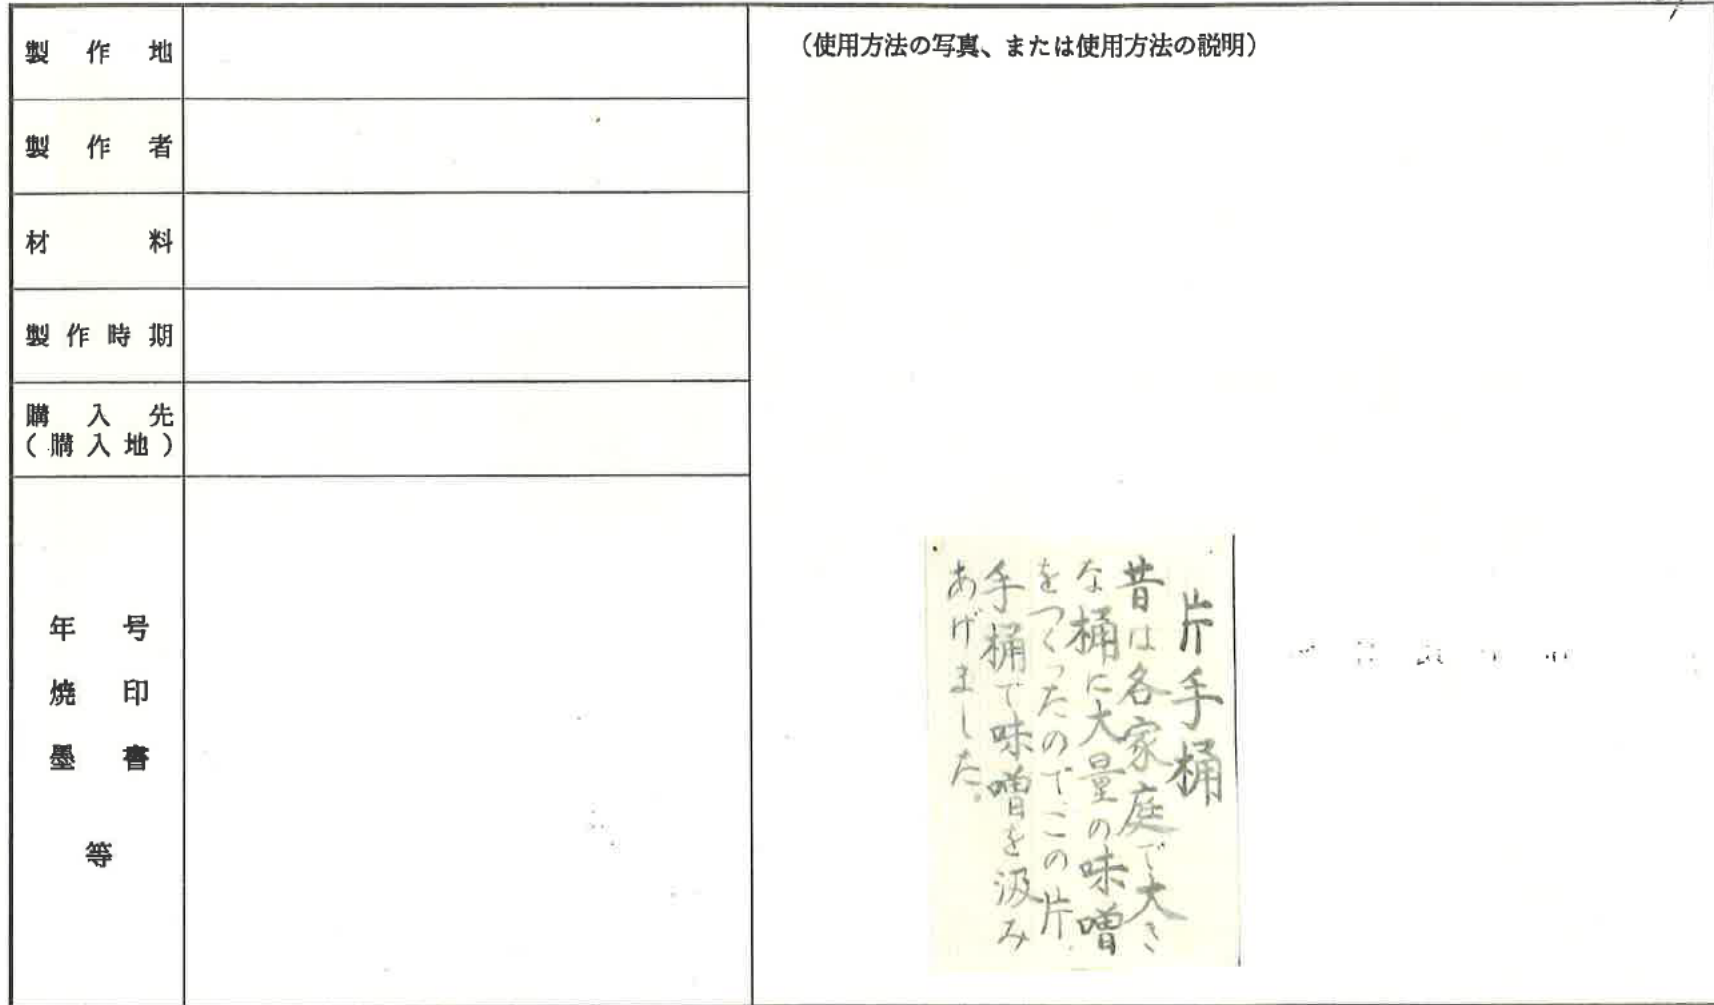 製作地
製作者
材料
製作時期
購入先
(購入地)
年号
焼印
墨書
等
(使用方法の写真、または使用方法の説明)
片手桶
昔は各家庭で大き
な桶に大量の味噌
をつくったのでこの片
手桶で味噌を汲み
あげました。